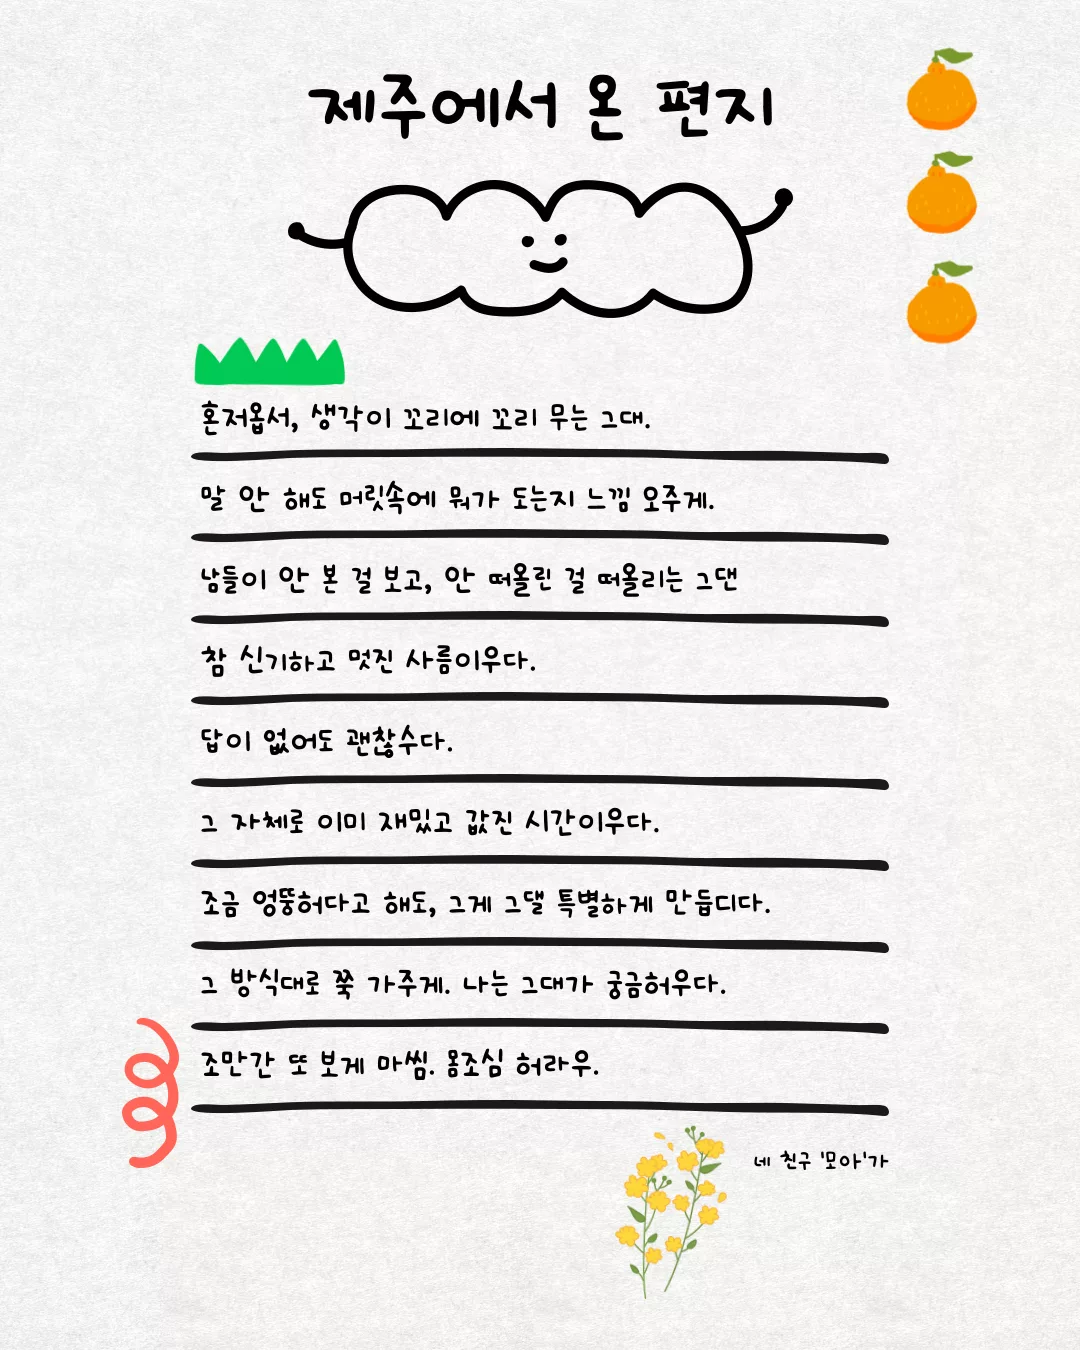 제주에서 온 편지
혼저옵서, 생각이 꼬리에 꼬리 무는 그대.
말 안 해도 머릿속에 뭐가 도는지 느낌 오주게.
남들이 안 본 걸 보고, 안 떠올린 걸 떠올리는 그댄
참 신기하고 멋진 사름이우다.
답이 없어도 괜찮수다.
그 자체로 이미 재밌고 값진 시간이우다.
조금 엉뚱허다고 해도, 그게 그댈 특별하게 만듭디다.
그 방식대로 쭉 가주게. 나는 그대가 궁금허우다.
조만간 또 보게 마씸. 몸조심 허라우.
네 친구 '모아'가